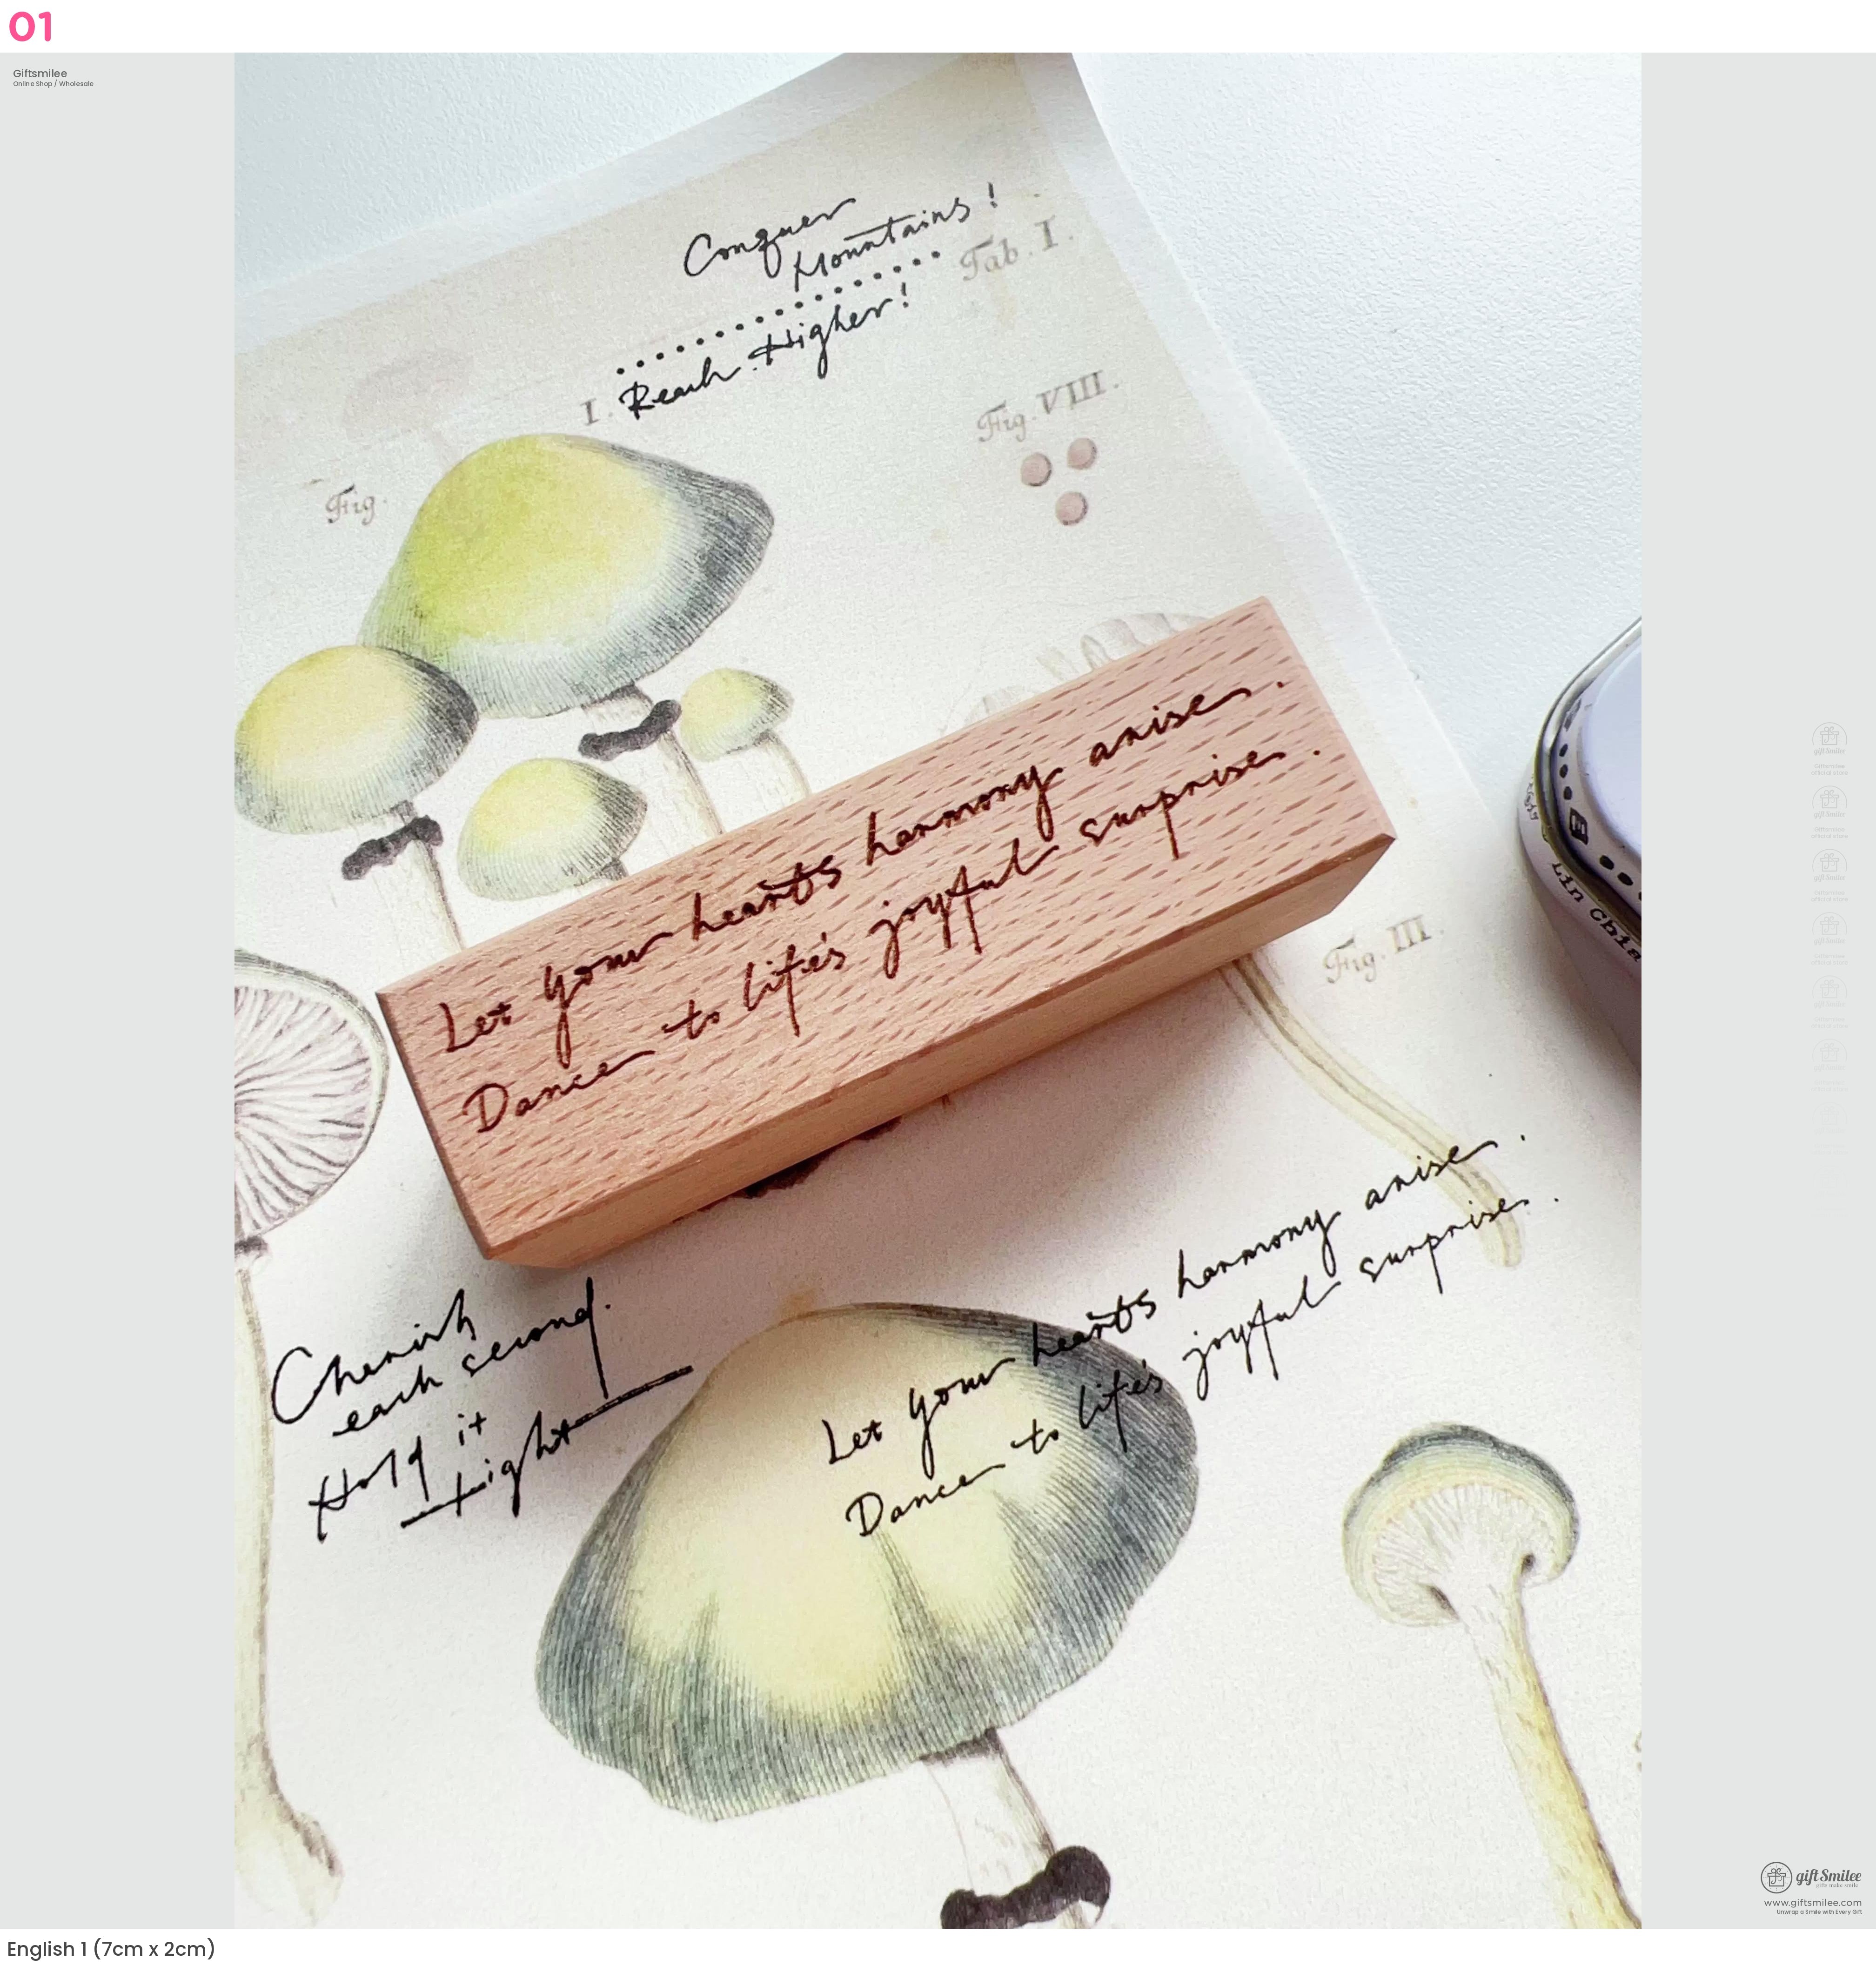 01
Giftsmilee
Online Shop / Wholesale
Conquer
Mountains!
Tab. I.
Reach Higher!
I.
Fig. VIII.
Fig.
Let your hearts harmony arise.
Dance to life's joyful surprise.
Lin Chia
Fig. III.
Let your hearts harmony arise.
Dance to life's joyful surprise.
Cherish
each second.
Hold it
tight
gift Smilee
gifts make smile
www.giftsmilee.com
Unwrap a Smile with Every Gift
English 1 (7cm x 2cm)